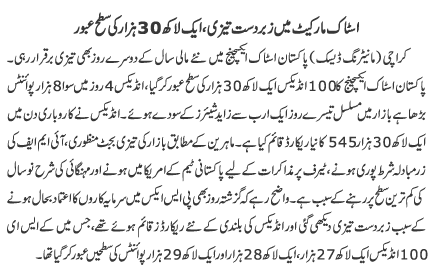 اسٹاک مارکیٹ میں زبردست تیزی، ایک لاکھ 30 ہزار کی سطح عبور
کراچی (مانیٹرنگ ڈیسک) پاکستان اسٹاک ایکسچینج میں نئے مالی سال کے دوسرے روز بھی تیزی برقرار رہی۔
پاکستان اسٹاک ایکسچینج کا 100 انڈیکس ایک لاکھ 30 ہزار کی سطح عبور کر گیا، انڈیکس 4 روز میں سوا 8 ہزار پوائنٹس
بڑھا ہے بازار میں مسلسل تیسرے روز ایک ارب سے زاید شیئرز کے سودے ہوئے۔ انڈیکس نے کاروباری دن میں
ایک لاکھ 30 ہزار 545 کا نیا ریکارڈ قائم کیا ہے۔ ماہرین کے مطابق بازار کی تیزی بجٹ منظوری، آئی ایم ایف کی
زرمبادلہ شرط پوری ہونے، ٹیرف پر مذاکرات کے لیے پاکستانی ٹیم کے امریکا میں ہونے اور مہنگائی کی شرح نو سال
کی کم ترین سطح پر رہنے کے سبب ہے۔ واضح رہے کہ گزشتہ روز بھی پی ایس ایکس میں سرمایہ کاروں کا اعتماد بحال ہونے
کے سبب زبردست تیزی دیکھی گئی اور انڈیکس کی بلندی کے نئے ریکارڈز قائم ہوئے تھے، جس میں کے ایس ای
100 انڈیکس ایک لاکھ 27 ہزار، ایک لاکھ 28 ہزار اور ایک لاکھ 29 ہزار پوائنٹس کی سطحیں عبور کر گیا تھا۔